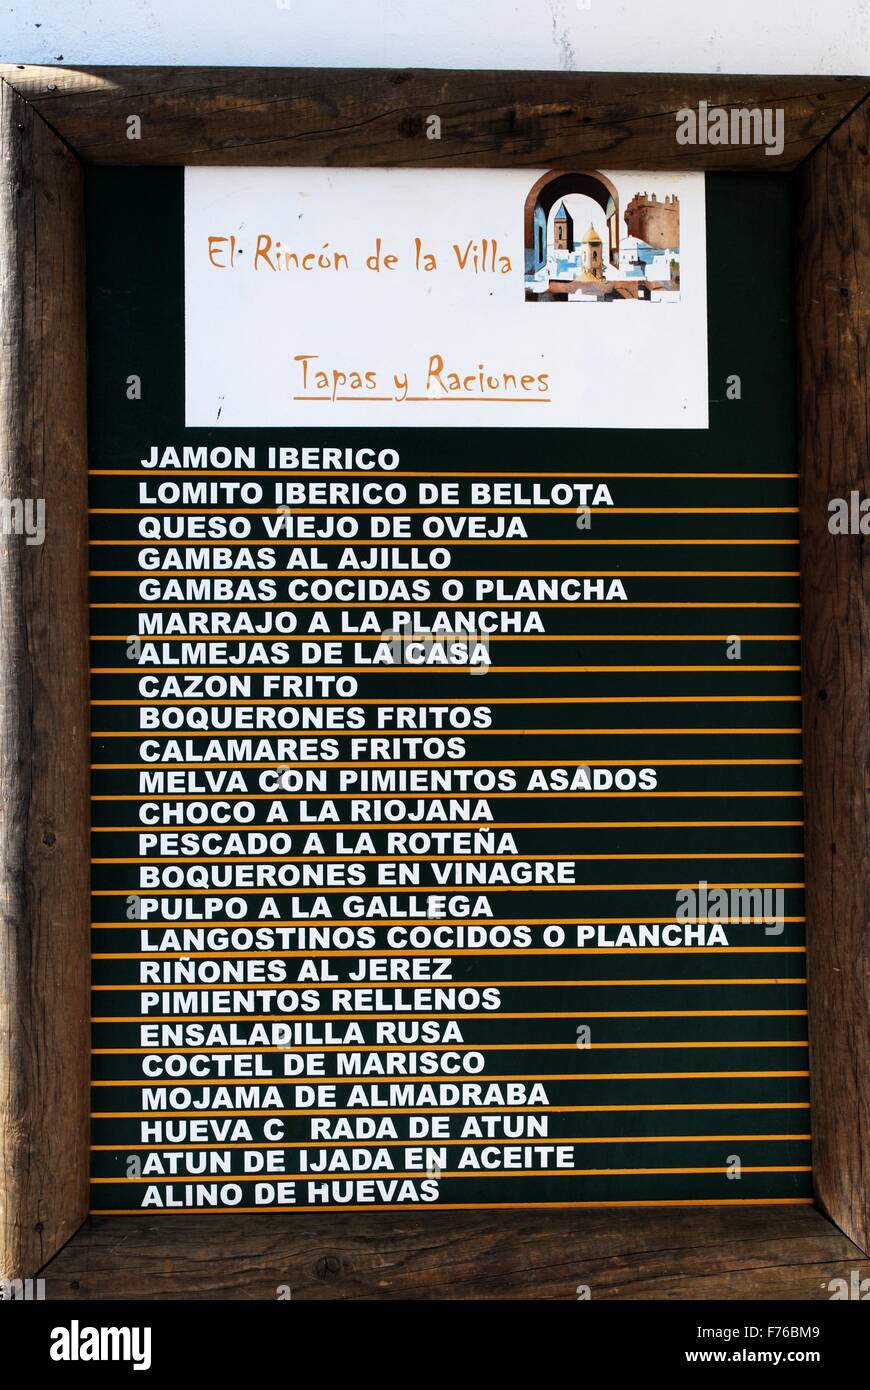 El Rincón de la Villa
Tapas y Raciones
JAMON IBERICO
LOMITO IBERICO DE BELLOTA
QUESO VIEJO DE OVEJA
GAMBAS AL AJILLO
GAMBAS COCIDAS O PLANCHA
MARRAJO A LA PLANCHA
ALMEJAS DE LA CASA
CAZON FRITO
BOQUERONES FRITOS
CALAMARES FRITOS
MELVA CON PIMIENTOS ASADOS
CHOCO A LA RIOJANA
PESCADO A LA ROTEÑA
BOQUERONES EN VINAGRE
PULPO A LA GALLEGA
LANGOSTINOS COCIDOS O PLANCHA
RIÑONES AL JEREZ
PIMIENTOS RELLENOS
ENSALADILLA RUSA
COCTEL DE MARISCO
MOJAMA DE ALMADRABA
HUEVA C RADA DE ATUN
ATUN DE IJADA EN ACEITE
ALINO DE HUEVAS
alamy stock photo
F76BM9
www.alamy.com